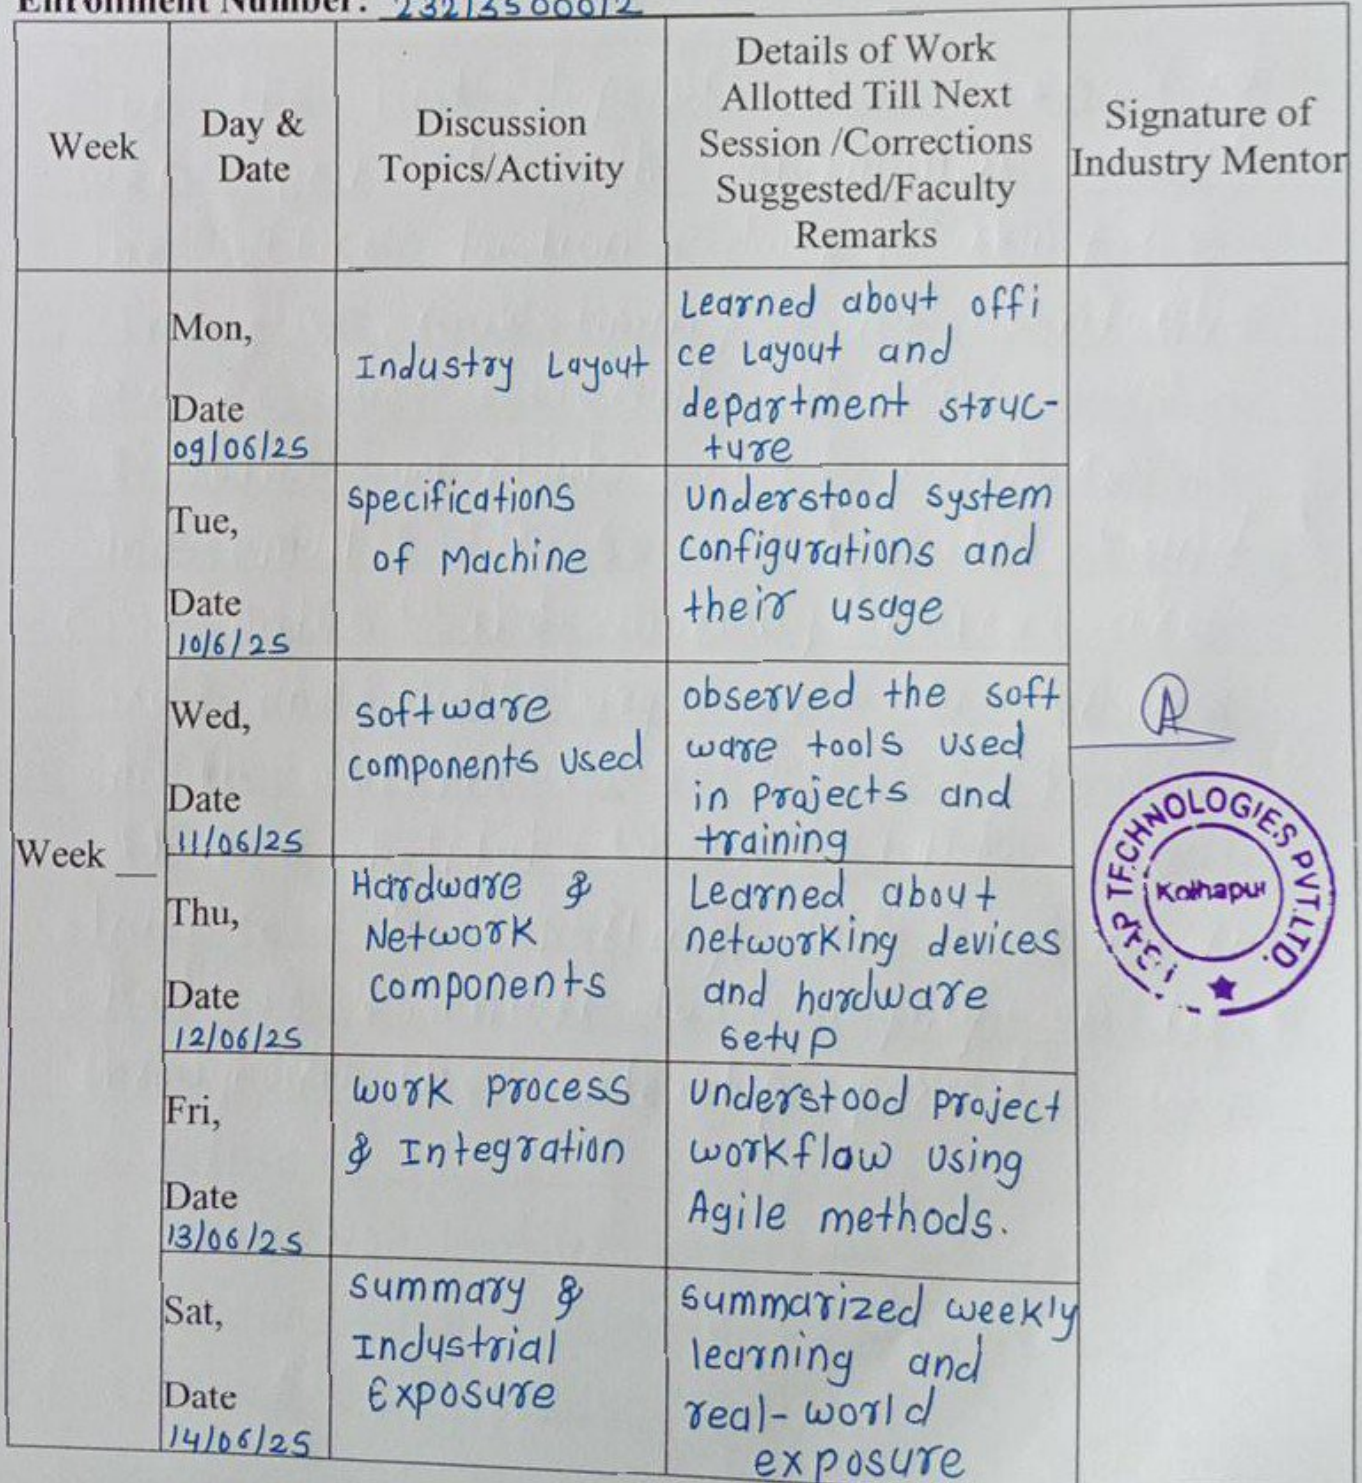 Enrollment Number:
Week
Day &
Date
Discussion
Topics/Activity
Details of Work
Allotted Till Next
Session /Corrections
Suggested/Faculty
Remarks
Signature of
Industry Mentor
Week __
Mon,
Date
09/06/25
Industry Layout
Learned about offi
ce Layout and
department struc-
ture
Tue,
Date
10/6/25
specifications
of Machine
Understood system
configurations and
their usage
Wed,
Date
11/06/25
software
components used
observed the soft
ware tools used
in Projects and
training
Thu,
Date
12/06/25
Hardware &
Network
components
Learned about
networking devices
and hardware
setup
Fri,
Date
13/06/25
work process
& Integration
Understood project
workflow using
Agile methods.
Sat,
Date
14/06/25
summary &
Industrial
Exposure
summarized weekly
learning and
real-world
exposure
TECHNOLOGIES PVT.LTD.
Kolhapur